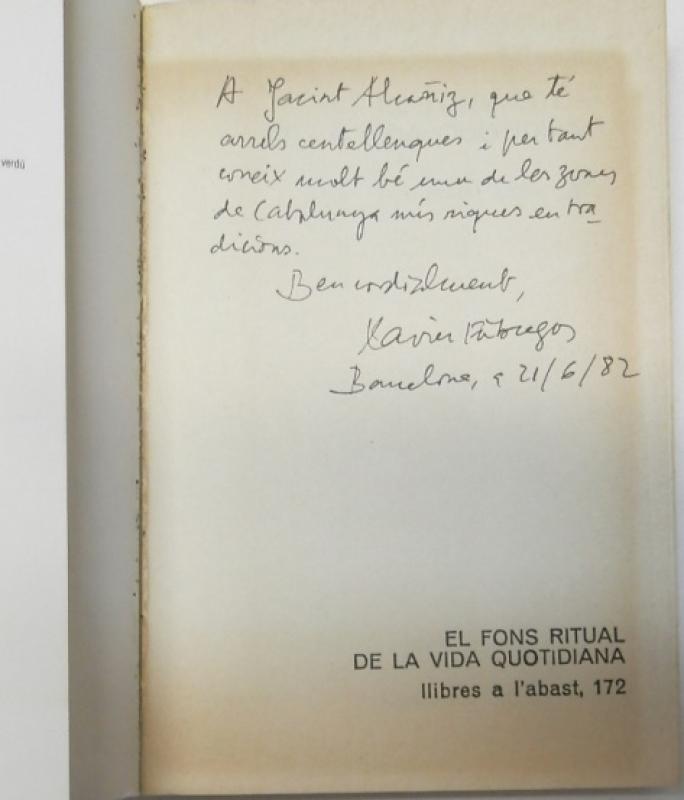 verdú
A Jacint Alcañiz, que té
arrels centellenques i per tant
coneix molt bé una de les zones
de Catalunya més riques en tra
dicions.
Ben cordialment,
Xavier Fàbregas
Barcelona, a 21/6/82
EL FONS RITUAL
DE LA VIDA QUOTIDIANA
llibres a l'abast, 172